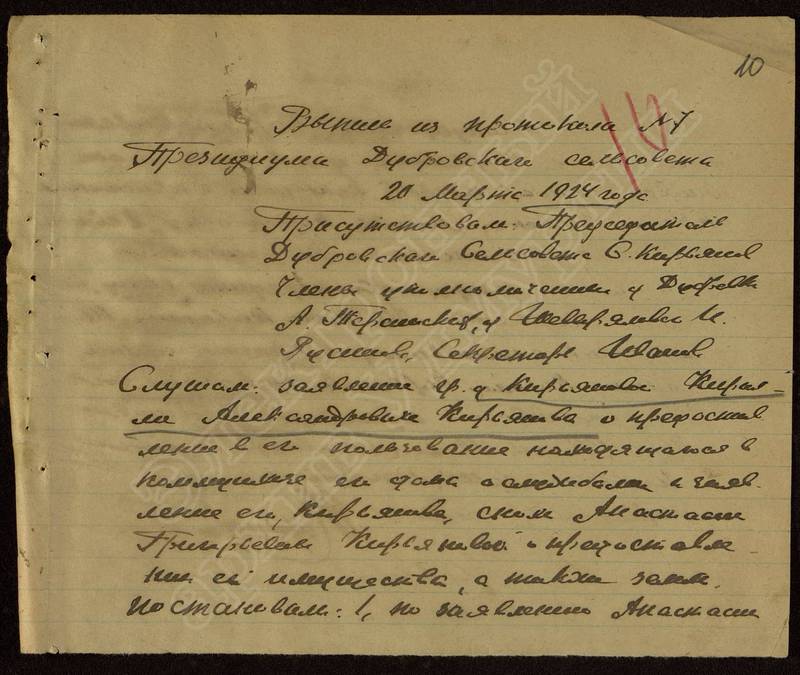 10
Выпись из протокола №7
Президиума Дубровскаи сельсовета
20 Марта 1924 года
Присутствовали: Председатель
Дубровскаи Сельсовета С. Кирьянов
Члены уполномоченныи д
А. и
Секретарь Иванов
Слушали: заявление гр. д Кирьяновы Кирил-
ла Александровича Кирьянова о предостав
лении в ег пользование находящагося в
коммущике ег дома со службами и заяв-
ление ег, Кирьянова, снохи Анастасии
Григорьевны Кирьяновой о предоставле-
нии ей имущества, а также земли.
постановили: 1, по заявлению Анастасии